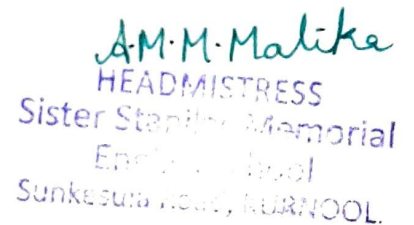 A.M.M. Malika
HEADMISTRESS
Sister Stanilus Memorial
English School
Sunkesula Road, KURNOOL.